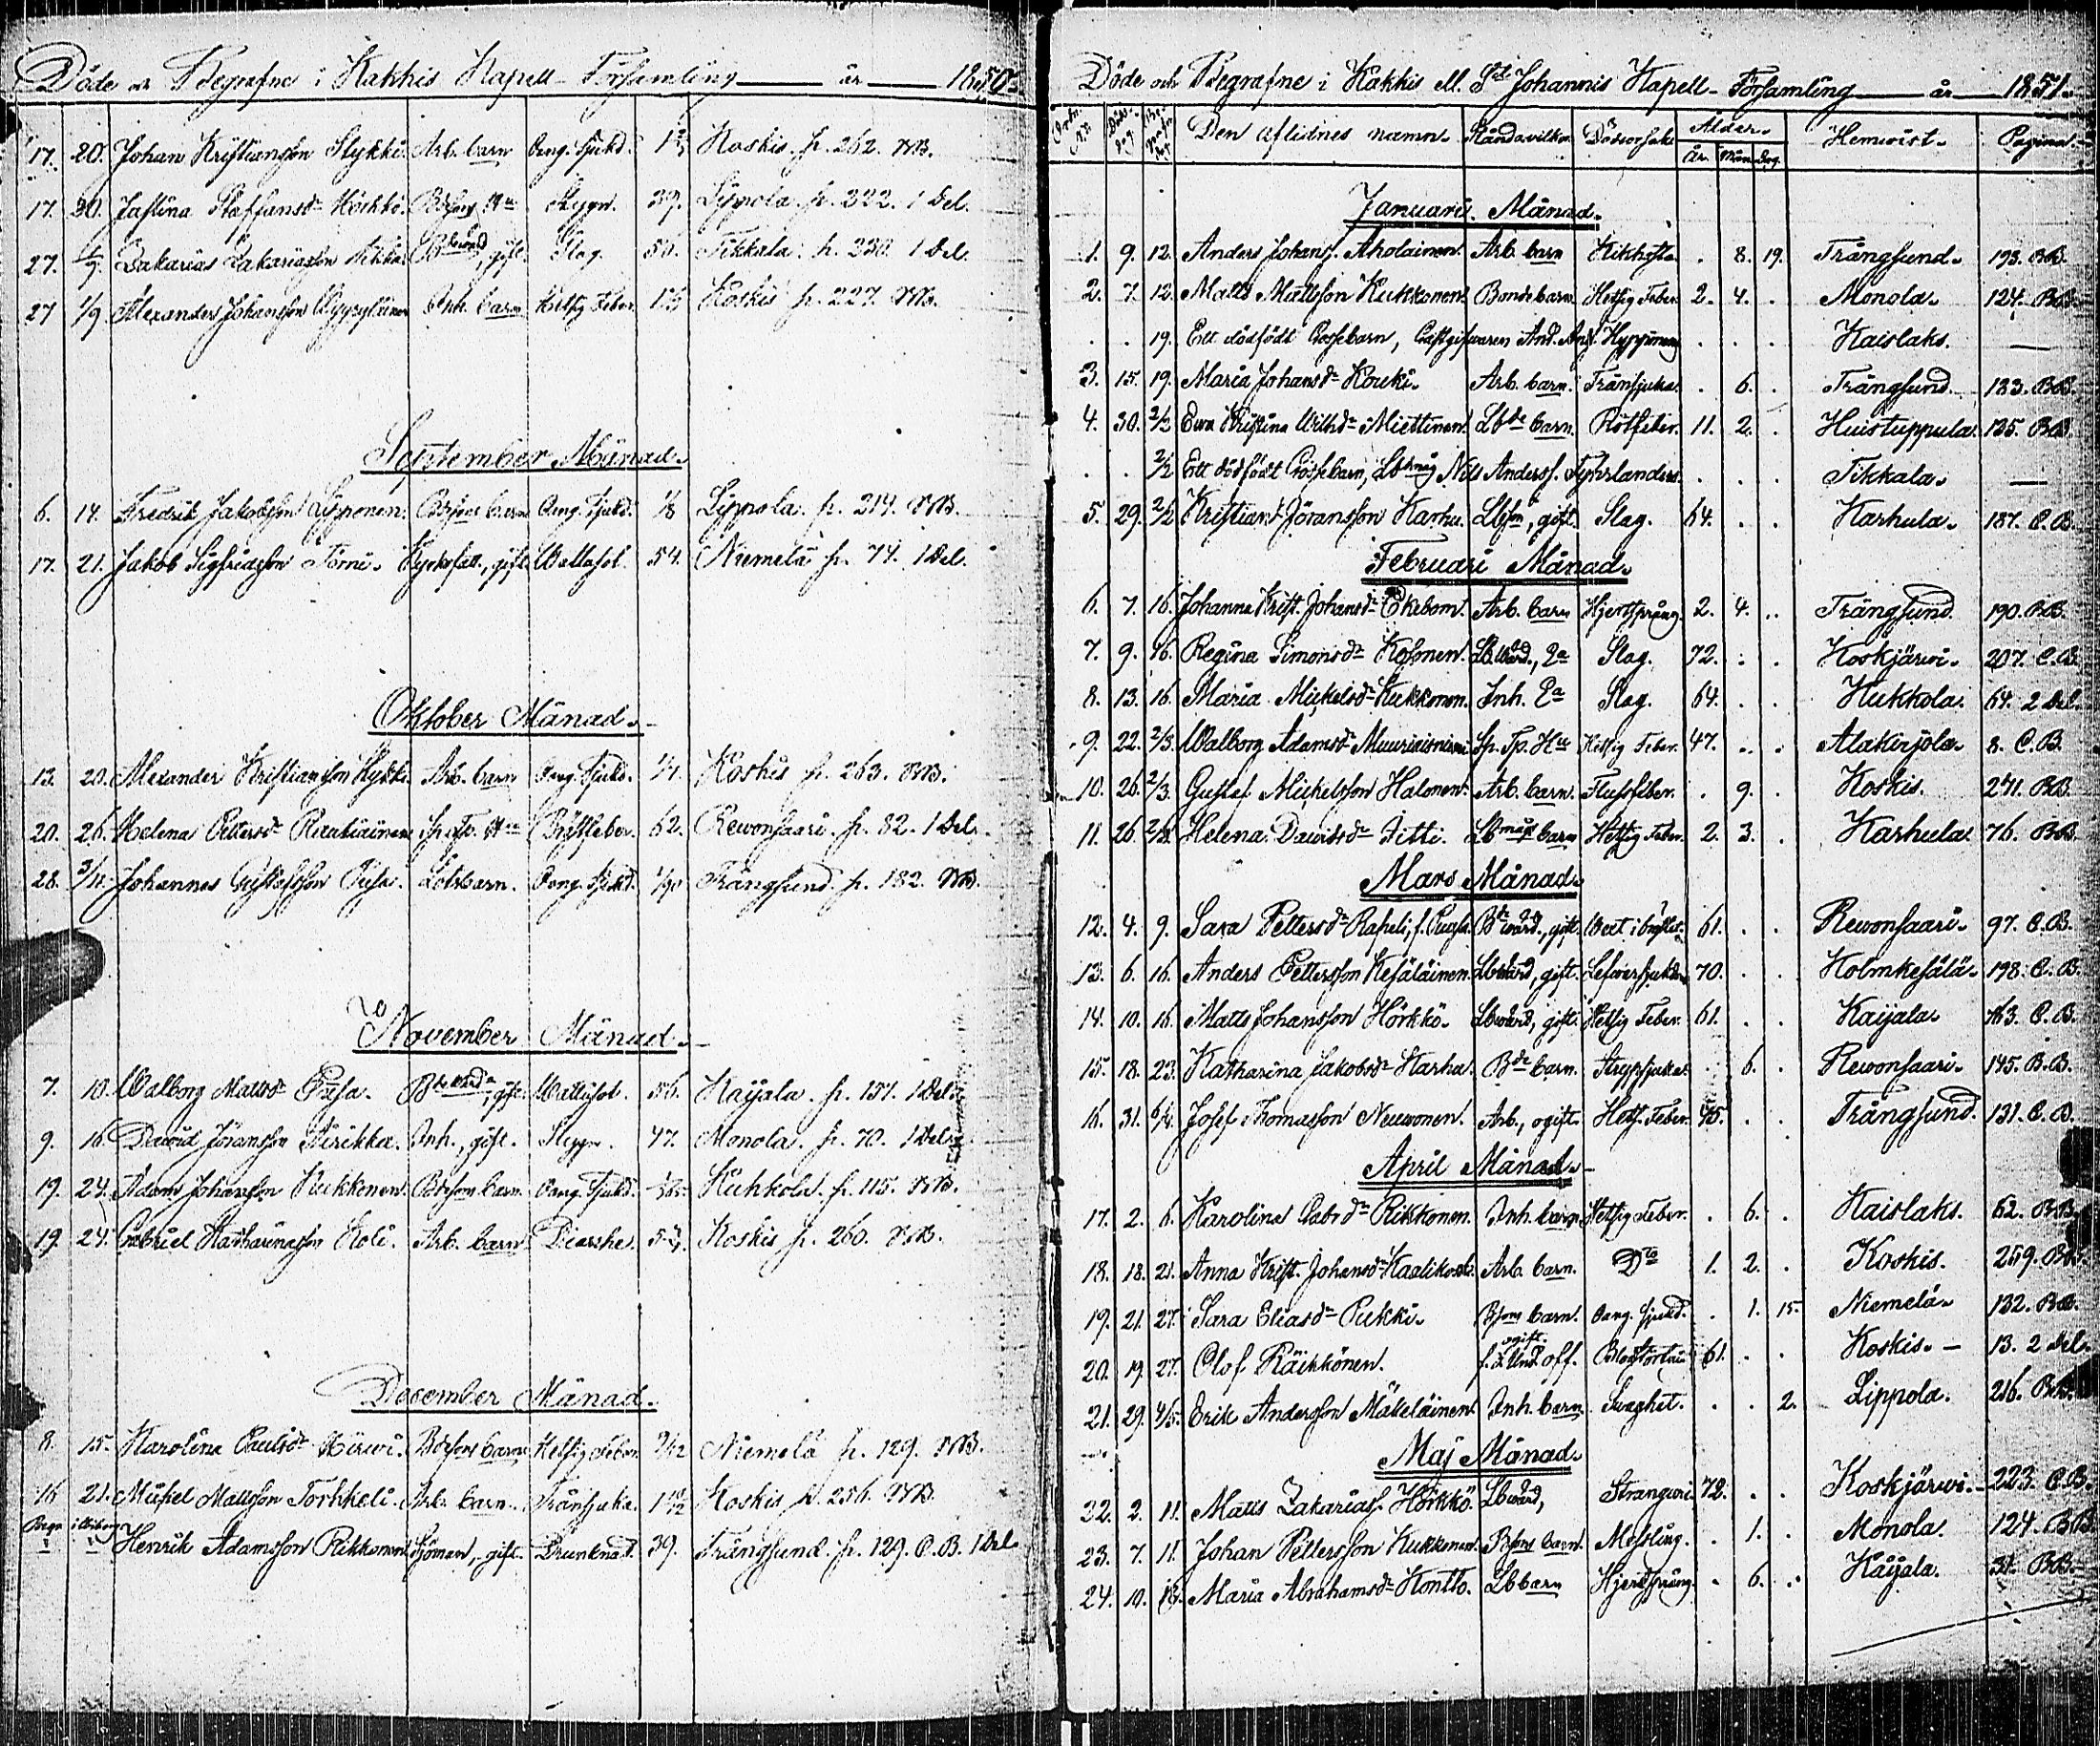 Döde och Begrafne i Kakkis Kapell-Församling år 1850.
17. 20. Johan Kristiansson Stykki. Arb. barn Oang. sjukd. Koskis. p. 262. BB.
17. 30. Justina Staffansd:r Hörkkö. Stygn. 39. Lippola. p. 222. 1 Del.
27. Zakarias Zakariasson gift Slag. 50. Tikkala. p. 230. 1 Del.
27 1/9 Alexander Johansson Inh. barn Hetsig Feber. Koskis p. 227. BB.
September Månad.
6. 14. Fredrik Jakobsson Lipponen. Oang. Sjukd. Lippola. p. 214. BB.
17. 21. Jakob Sigfridsson Törni. gift Wattusot. 54. Niemelä p. 74. 1 Del.
Oktober Månad.
13. 20. Alexander Kristiansson Stykki. Arb. barn Oang. Sjukd. Koskis p. 263. BB.
20. 26. Helena Pettersd:r Bröstfeber. 62. Rewonsaari. p. 82. 1 Del.
28. 3/11. Johannes Gustafsson Pusa. Lotsbarn. Oang. Sjukd. Trångsund. p. 182. BB.
November Månad.
7. 10. Walborg Mattsd:r Pusa. gift Wattusot. 56. Kaijala. p. 151. 1 Del.
9. 16. David Göransson Pirikka. Inh., gift. Styggn. 47. Monola. p. 70. 1 Del.
19. 24. Adam Johansson Kukkonen. barn Oang. Sjukd. Kuhkola. p. 115. BB.
19. 24. Gabriel Katharinasson Koli. Arb. barn Diarrhe. Koskis p. 260. BB.
December Månad.
8. 15. Karolina Paulsd:r Hirwi. barn Hetsig Feber. Niemelä p. 129. BB.
16 21. Mickel Mattsson Torkkeli. Arb. barn. Trånsjuka. Koskis p. 256. BB.
Henrik Adamsson Rikkonen Sjöman, gift. Drunknad. 39. Trångsund. p. 129. C.B. 1 Del.
Döde och Begrafne i Kakkis ell. S:t Johannis Kapell-Församling år 1851.
Den aflidnes namn. Ståndsvilkor. Dödsorsak Ålder. Hemvist. Pagina.
År. Mån. Dag.
Januari Månad.
1. 9. 12. Anders Johanss. Aholainen. Arb. barn Kikhosta. . 8. 19. Trångsund. 193. BB.
2. 7. 12. Matts Mattsson Kukkonen. Bondebarn. Hetsig Feber. 2. 4. . Monola. 124. BB.
. . 19. Ett dödfödt Gossebarn, Gästgifwaren And. And. Hyppönens . . . Kaislaks. —
3. 15. 19. Maria Johansd:r Kouki. Arb. barn. Trånsjuka. . 6. . Trångsund. 183. BB.
4. 30. 2/2 Ewa Kristina Wilhd:r Miettinen. Lb:de barn. Rötfeber. 11. 2. . Huistuppula. 125. BB.
. . 2/2 Ett dödfödt Gossebarn, Nils Anderss. Tyhrlanders. . . . Tikkala. —
5. 29. 2/2 Kristian Göransson Karhu. gift. Slag. 64. . . Karhula. 187. C.B.
Februari Månad.
6. 7. 16. Johanna Krist. Johansd:r Ekebom. Arb. barn Hjertsprång. 2. 4. . Trångsund. 190. B.B.
7. 9. 16. Regina Simonsd:r Kosonen. Slag. 72. . . Koskjärwi. 207. C.B.
8. 13. 16. Maria Mickelsd:r Kukkonen. Inh. E:a Slag. 64. . . Kukkola. 64. 2 Del.
9. 22. 2/3. Walborg Adamsd:r Hetsig Feber. 47. . . Alakirjola. 8. C.B.
10. 26. 2/3. Gustaf Mickelsson Halonen. Arb. barn. Flussfeber. . 9. . Koskis. 241. BB.
11. 26 2/3. Helena Dawidsd:r Titti. barn Hetsig Feber. 2. 3. . Karhula. 76. BB.
Mars Månad.
12. 4. 9. Sara Pettersd:r Rapeli, f. gift. 61. . . Rewonsaari. 97. C.B.
13. 6. 16. Anders Pettersson Kesäläinen. gift. Lefwersjukdom 70. . . Holmkesälä. 198. C.B.
14. 10. 16. Matts Johansson Hörkkö. gift. Hetsig Feber. 61. . . Kaijala. 163. C.B.
15. 18. 23. Katharina Jakobsd:r Karhu. B:de barn. Strypsjuka. . 6. . Rewonsaari. 145. B.B.
16. 31. 6/4. Josef Thomasson Neuwonen. Arb., ogift. Hets. Feber. 45. . . Trångsund. 131. C.B.
April Månad.
17. 2. 6. Karolina Gabrd:r Rikkonen. Inh. barn. Hetsig Feber. . 6. . Kaislaks. 62. BB.
18. 18. 21. Anna Krist. Johansd:r Arb. barn. D:to 1. 2. . Koskis. 259. BB.
19. 21. 27. Sara Eliasd:r Pukki. barn. Oang. sjukd. . 1. 15. Niemelä. 132. BB.
20. 19. 27. Olof Räikkönen. ogift. f. d. Und. off. 61. . . Koskis. 13. 2 Del.
21. 29. 4/5. Erik Andersson Mäkeläinen. Inh. barn. Swaghet. . . 2. Lippola. 216. BB.
Maj Månad.
22. 2. 11. Matts Zakariass. Hörkkö. Stranguri. 72. . . Koskjärwi. 223. C.B.
23. 7. 11. Johan Pettersson Kukkonen. barn. Messling. . 1. . Monola. 124. BB.
24. 10. 18. Maria Abrahamsd:r Kontto. Lbbarn Hjertsprång. . 6. . Kaijala. 31. BB.